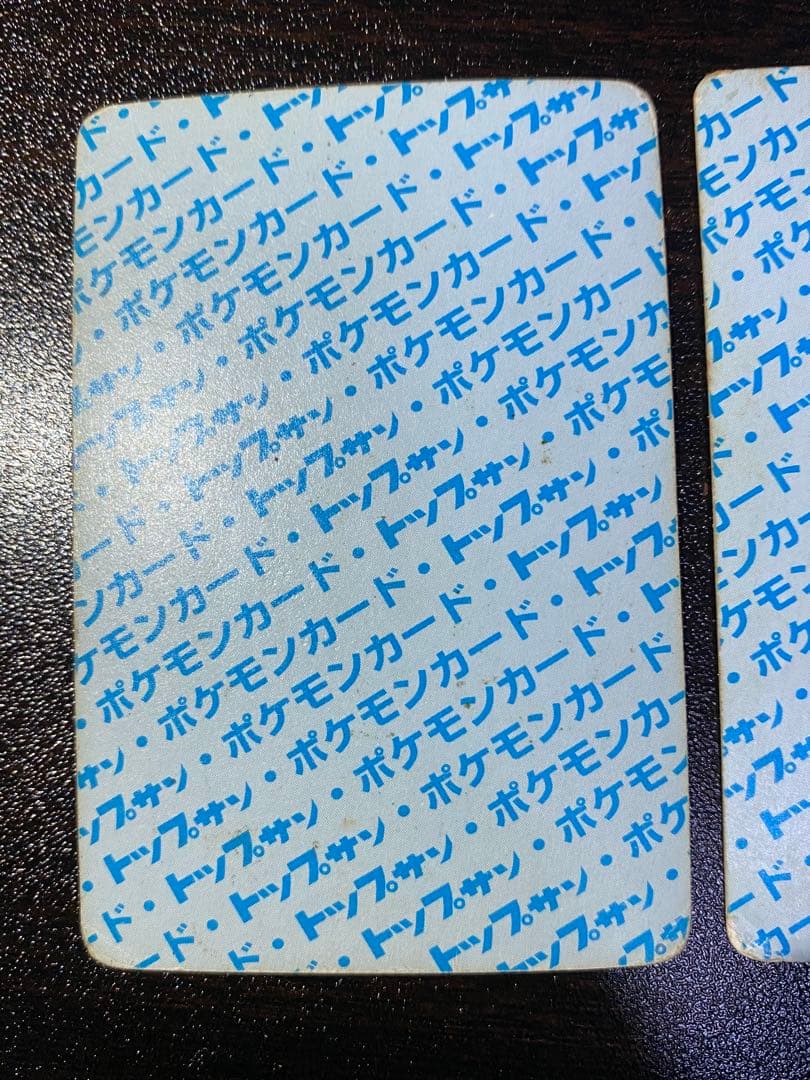 ド・
カード・トップ
モンカード・トップサン
ポケモンカード・トップサン
・ポケモンカード・トッ
・ポケモンカード・
サン・ポケモンカード
トップサン・ポケモンカード
・トップサン・ポケモンカ
ード・トップサン・ポケモ
カード・トップサン・ポ
ンカード・トップサン
ケモンカード・トップサン
・ポケモンカード・トップ
・ポケモンカード・ト
サン・ポケモンカード
ップサン・ポケモンカー
・トップサン・ポケモン
ド・トップサン・ポケ
ード・トップサン・
ド・トップサン
カード
モンカ
ポケ
・ポケ
サン・
トップ
トッ
ード
カード
ンカ
ケモ
・ポケ
サン・
ップサン
・トッ
ード
カード